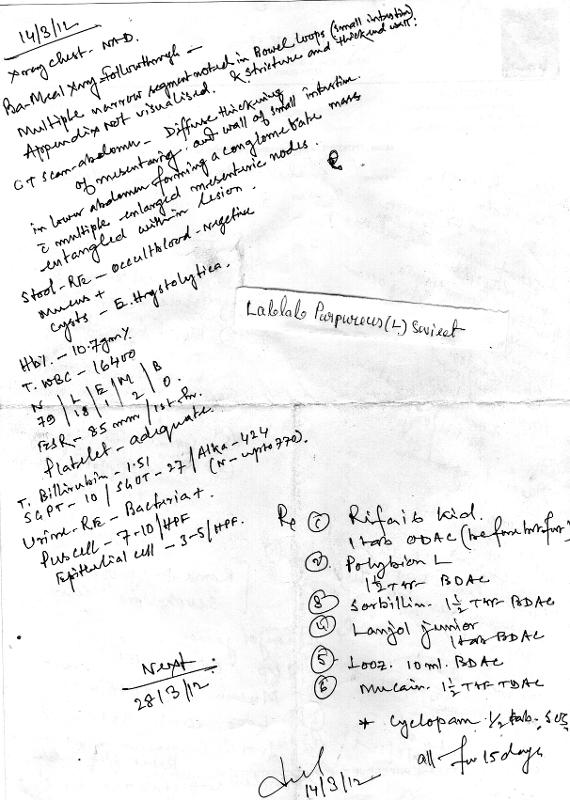 14/3/12
Xray chest - NAD.
Ba-Meal Xray followthrough -
Multiple narrow segment noted in Bowel loops (small intestine)
Appendix not visualised. & stricture and thickened wall.
CT scan-abdomen - Diffuse thickening
of mesentary. and wall of small intestine.
in lower abdomen forming a conglomerate mass
c̄ multiple enlarged mesenteric nodes.
entangled within lesion.
Stool - RE - occultblood - negative
mucus +
cysts - E. Hystolytica.
Lablab Purpureus (L) Sweet
Hb%. - 10.7gm%
T. WBC - 16400
N | L | E | M | B
79 | 18 | 1 | 2 | 0.
ESR - 85 mm / 1st hr.
Platelet - adequate.
T. Billirubin - 1.51
SGPT - 10 / SGOT - 27 / Alka - 424
(N - upto 770).
Urine - RE - Bacteria +.
Puscell - 7-10/HPF
Epithelial cell - 3-5/HPF.
Rx ① Rifa i6 kid.
1 tab ODAC (before breakfast)
② Polybion L
1½ TSF BDAC
③ Sorbillin. 1½ TSF BDAC
④ Lanzol junior
1 tab BDAC
⑤ Looz. 10 ml. BDAC
⑥ Mucain. 1½ TSF TDAC
* Cyclopam ½ tab - SOS
all for 15 days
Next
28/3/12
14/3/12